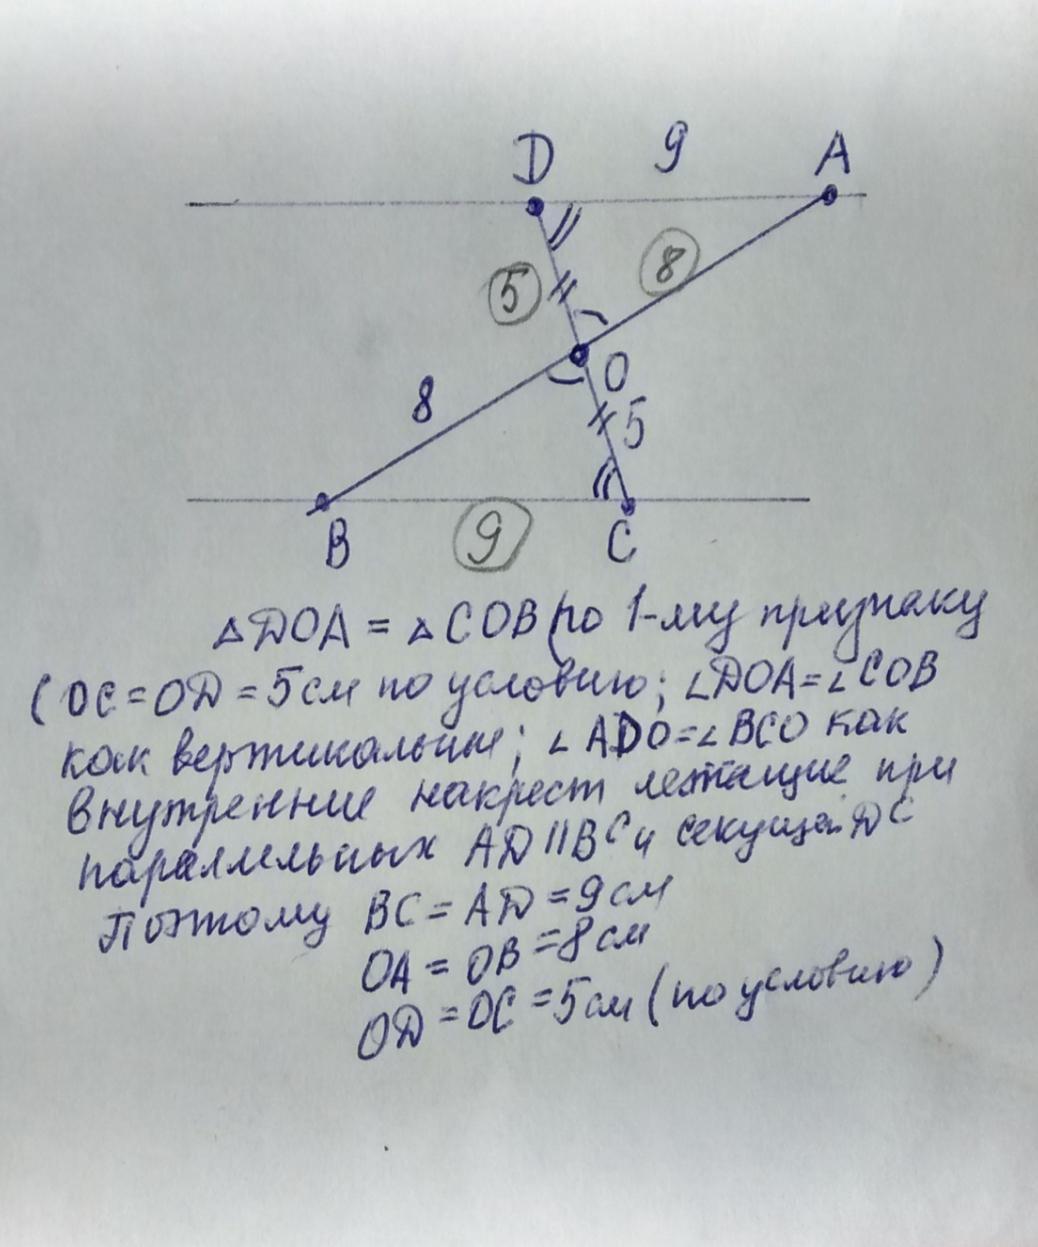 D 9 A
5 8
O
8 5
B 9 C
△DOA = △COB (по 1-му признаку
(OC = OD = 5 см по условию; ∠DOA = ∠COB
как вертикальные; ∠ADO = ∠BCO как
внутренние накрест лежащие при
параллельных AD || BC и секущей DC
Поэтому BC = AD = 9 см
OA = OB = 8 см
OD = OC = 5 см (по условию)